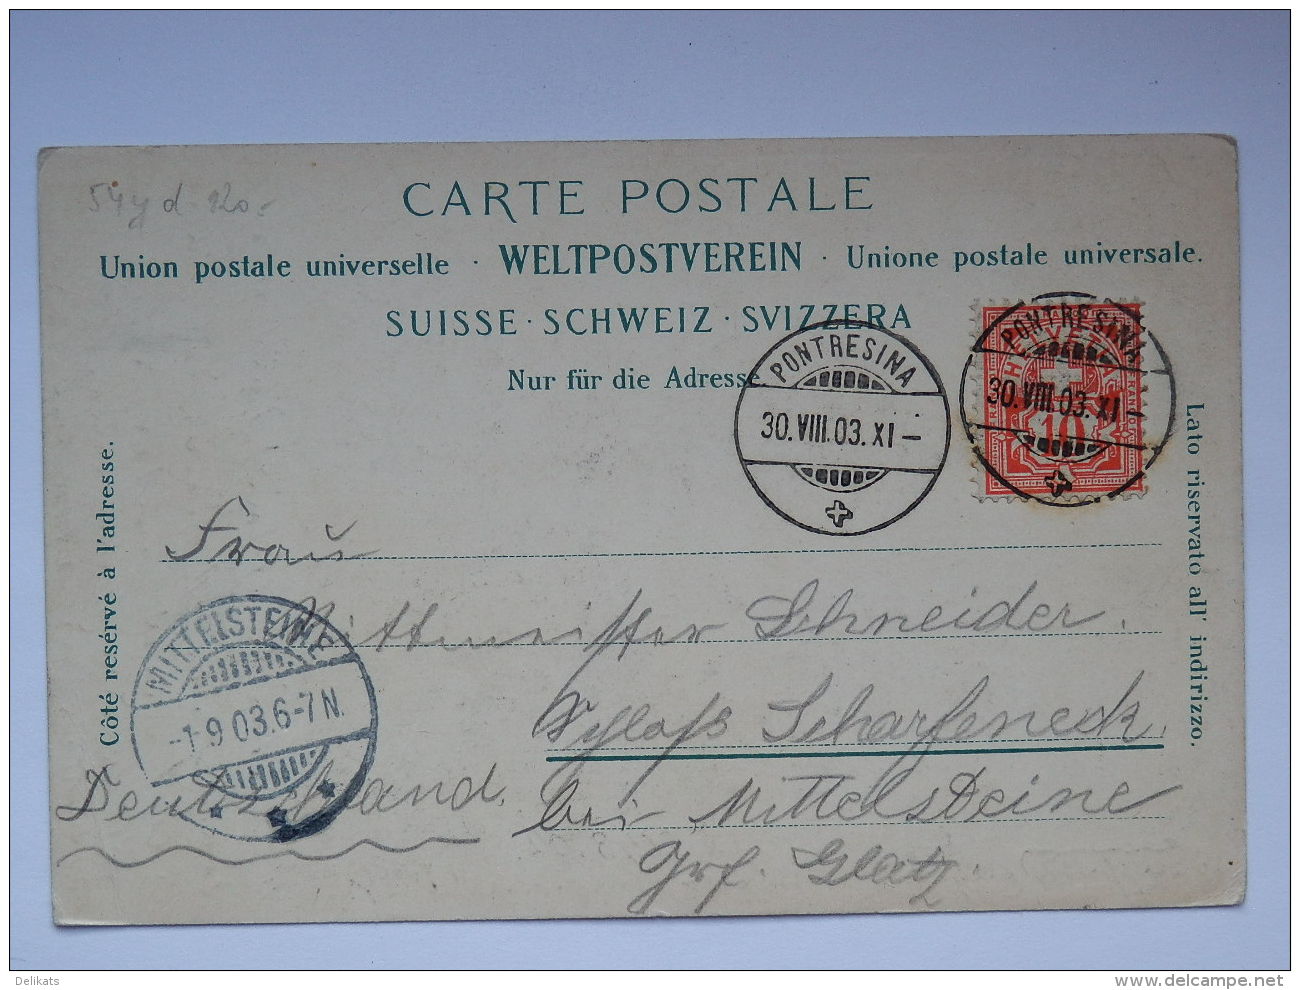 54y d 120.-
CARTE POSTALE
Union postale universelle · WELTPOSTVEREIN · Unione postale universale.
SUISSE · SCHWEIZ · SVIZZERA
Nur für die Adresse
PONTRESINA
30.VIII.03.XI–
PONTRESINA
30.VIII.03.XI–
HELVETIA
FRANCO
10
Côté resérvé à l'adresse.
Lato riservato all' indirizzo.
Frau
Rittmeister Schneider.
Schloß Scharfeneck
bei Mittelsteine
Grf. Glatz.
Deutschland.
MITTELSTEINE
-1.9.03.6-7N.
Delikats
www.delcampe.net